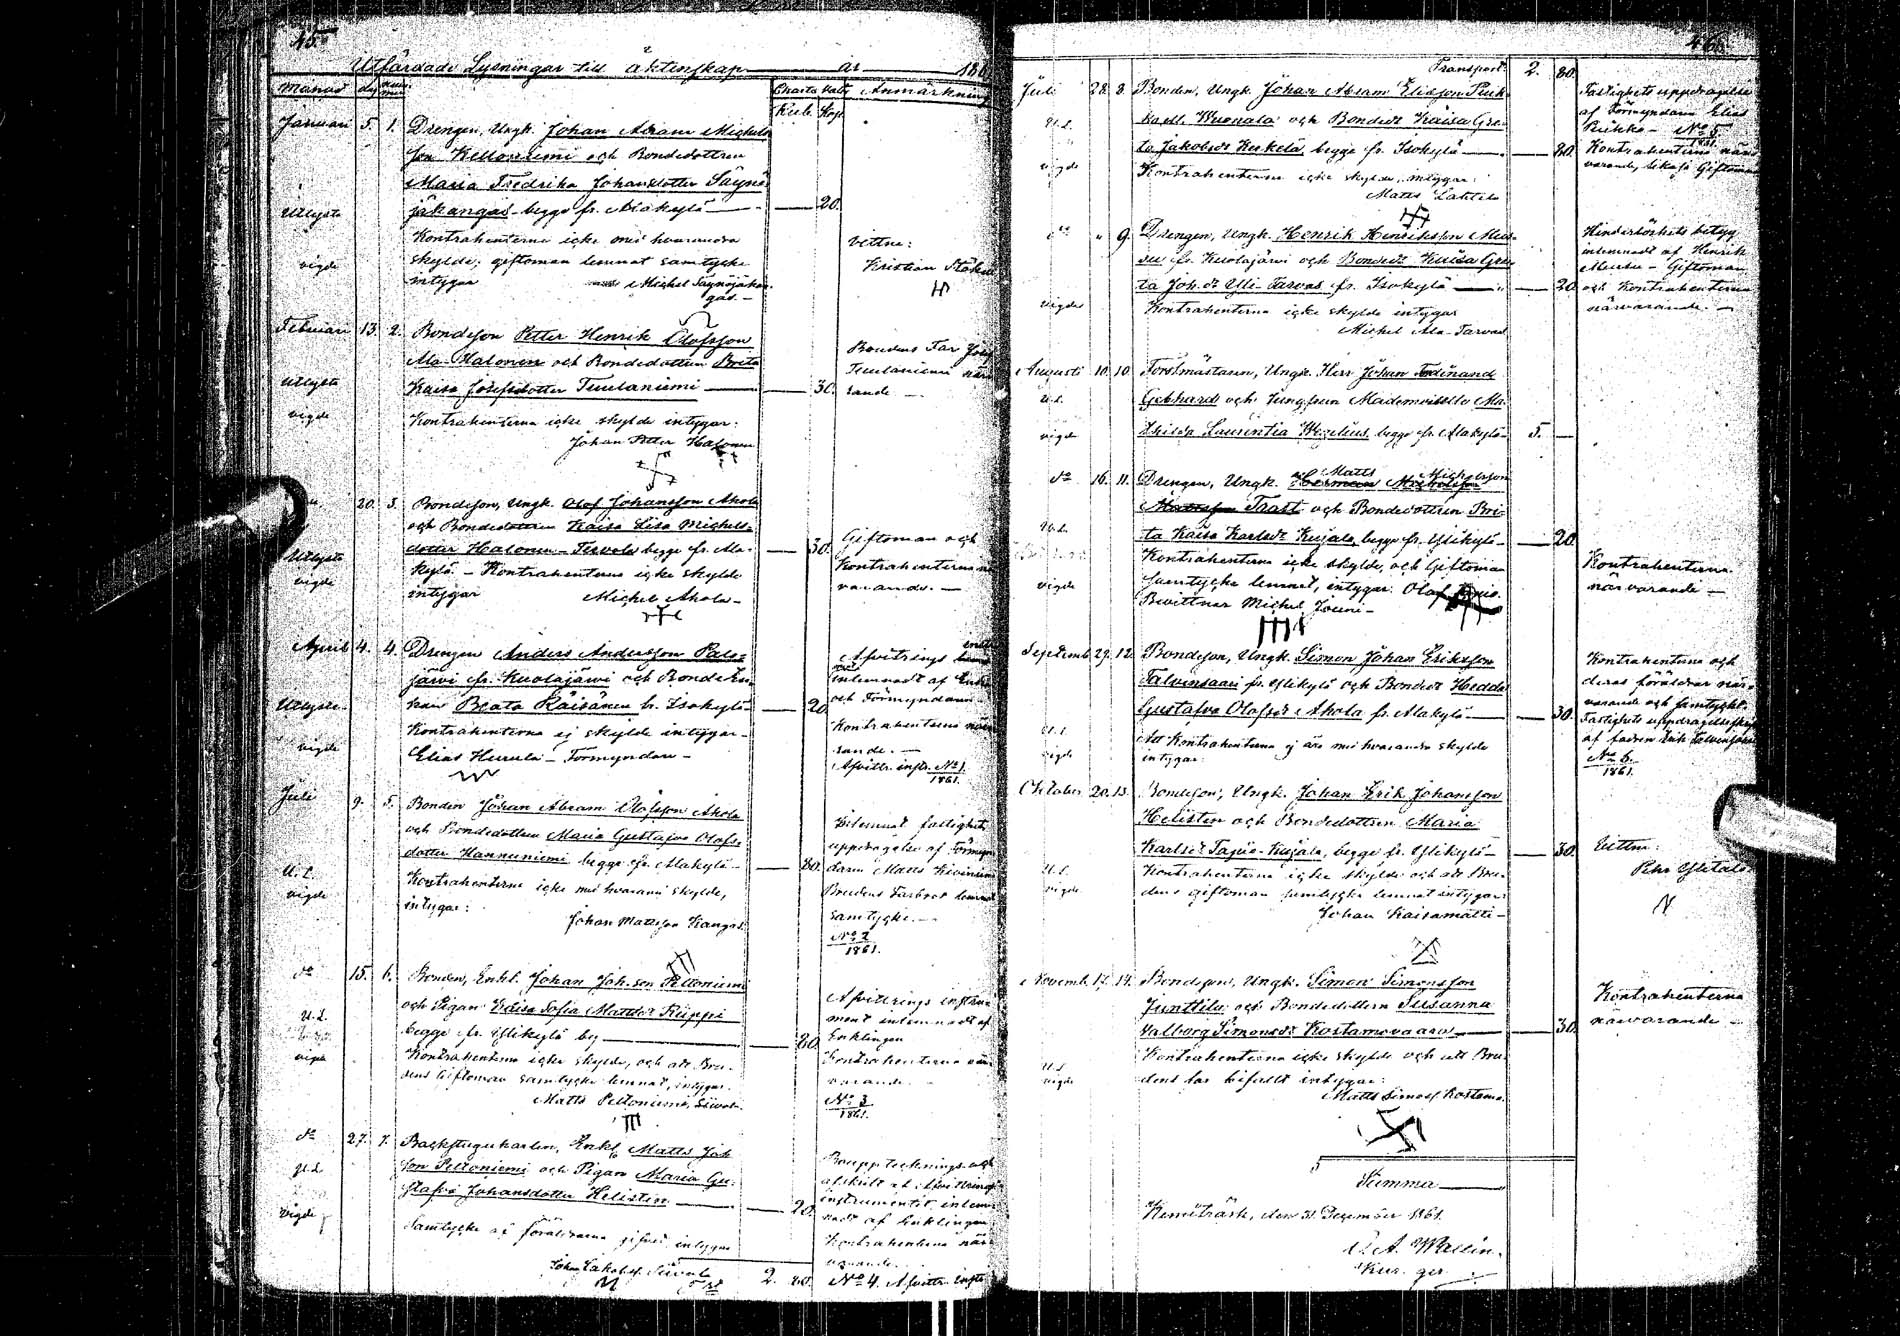 45.
Utfärdade Lysningar till äktenskap år 186
Månad dag num̄er Charta Afgift Anmärkning
Rub. Kop.
Januari 5. 1. Drengen, Ungk. Johan Abram Michels-
son Kelloniemi och Bondedottren
Maria Fredrika Johansdotter Säynä-
jäkangas begge fr. Alakylä — 20.
Utlyste
Kontrahenterna icke med hvarandra
skylde, giftoman lemnat samtycke
intygar Michel Säynäjäkan-
gas.—
vigde
Vittne:
Kristian
Februari 13. 2. Bondeson Petter Henrik Olofsson
Ala-Halonen och Bondedottren Brita
Kaisa Josefsdotter Tuulaniemi — 30.
Utlyste
vigde
Kontrahenterna icke skylde intygar:
Johan Petter Halonen
Brudens Far Josef
Tuulaniemi när-
varande —
20. 3. Bondeson, Ungk. Olof Johansson Ahola
och Bondedottren Kaisa Lisa Michels-
dotter Halonen-Tervola begge fr. Ala-
kylä. — Kontrahenterna icke skylde
intygar Michel Ahola —
30.
Utlyste
vigde
Giftoman och
Kontrahenterna när-
varande. —
April 4. 4. Drengen Anders Andersson Palo-
järvi fr. Kuolajärvi och Bonde En-
kan Beata Räisänen fr. Isokylä — 20
Utlyste
vigde
Kontrahenterna ej skylde intygar —
Elias Hervela — Förmyndare —
Afvittrings
inlemnadt af Enkan
och Förmyndaren
Kontrahenterna närva-
rande. —
Afvittr. instr. No 1.
1861.
Juli 9. 5. Bonden Johan Abram Olofsson Ahola
och Bondedottren Maria Gustafva Olofs-
dotter Hannuniemi begge fr. Alakylä — 80.
U. L.
vigde
Kontrahenterna icke med hvarann skylde,
intygar:
Johan Mattsson Kangas.
Inlemnat fastighets
uppdragelse af Förmyn-
daren Matts Kiviniemi
Brudens Farbror lemnat
samtycke. —
No 2
1861.
do 15. 6. Bonden, Enkl. Johan Joh:son Peltoniemi
och Pigan Kaisa Sofia Mattsdr Riippi
begge fr. Ylikylä by — 80.
U. L.
vigde
Kontrahenterna icke skylde, och att Bru-
dens Giftoman samtycke lemnat, intygar.
Matts Peltoniemi,
Afvittrings instru-
ment inlemnadt af
Enklingen
Kontrahenterna när-
varande. —
No 3
1861.
do 27. 7. Backstugukarlen, Enkl. Matts Joh
son Peltoniemi och Pigan Maria Gu-
stafva Johansdotter Helisten — 20.
U. L.
vigde
Samtycke af föräldrarna gifvit intygar
Bouppteckning och
instrumentet inlem-
nadt af Enklingen
Kontrahenterna när-
varande.
2. 80. No 4. Afvittr. instr.
46.
Transport. 2. 80.
Juli 28. 8. Bonden, Ungk. Johan Abram Elisson
Wuonala och Bondedr Kaisa Gre-
ta Jakobsdr Kerkelä, begge fr. Isokylä — 80.
U. L.
vigde
Kontrahenterna icke skylde, intygar:
Matts Lahtela
Fastighets uppdragelse
af Förmyndaren Elias
No 5.
1861.
Kontrahenterna när-
varande, likaså Giftoman
do " 9. Drengen, Ungk. Henrik Henriksson
fr. Kuolajärvi och Bondedr Kaisa Gre-
ta Joh:dr Yli-Tarvas fr. Isokylä — 20
vigde
Kontrahenterna icke skylde intygar
Michel Ala-Tarvas
Hinderlöshets betyg
inlemnadt af Henrik
Giftoman
och Kontrahenterna
närvarande. —
Augusti 10. 10. Forstmästaren, Ungk. Herr Johan Ferdinand
Gebhard och Jungfrun Mademoiselle Ma-
thilda Laurentia Wegelius begge fr. Alakylä — 5. —
U. L.
vigde
do 16. 11. Drengen, Ungk. Matts Michelsson
Trast och Bondedottren Bri-
ta Kaisa Karlsdr Kujala, begge fr. Ylikylä — 20
U. L.
vigde
Kontrahenterna icke skylde, och Giftoman
samtycke lemnat, intygar. Olof
Bevittnar Michel Jouni —
Kontrahenterna
närvarande —
Septemb. 29. 12. Bondeson, Ungk. Simon Johan Eriksson
Talvensaari fr. Ylikylä och Bondedr Hedda
Gustafva Olofsdr Ahola fr. Alakylä — 30.
U. L.
vigde
Att Kontrahenterna ej äro med hvarandra skylde
intygar:
Kontrahenterna och
deras föräldrar när-
varande och samtyckt.
Fastighets uppdragelseskrift
af fadren Erik Talvensaari
No 6.
1861.
October 20. 13. Bondeson, Ungk. Johan Erik Johansson
Helisten och Bondedottren Maria
Karlsdr Tapio-Kujala, begge fr. Ylikylä — 30.
U. L.
vigde
Kontrahenterna icke skylde och att Bru-
dens giftoman samtycke lemnat intygar
Johan Kaisamatti —
Vittne:
Pehr Ylitalo
Novemb. 17. 14. Bondeson, Ungk. Simon Simonsson
Junttila och Bondedottren Susanna
Valborg Simonsdr Kostamovaara — 30.
U. L.
vigde
Kontrahenterna icke skylde och att Bru-
dens far bifallit intygar:
Matts Simonss. Kostamo.
Kontrahenterna
närvarande —
Summa —
Kemiträsk, den 31 December 1861.
Wallin.